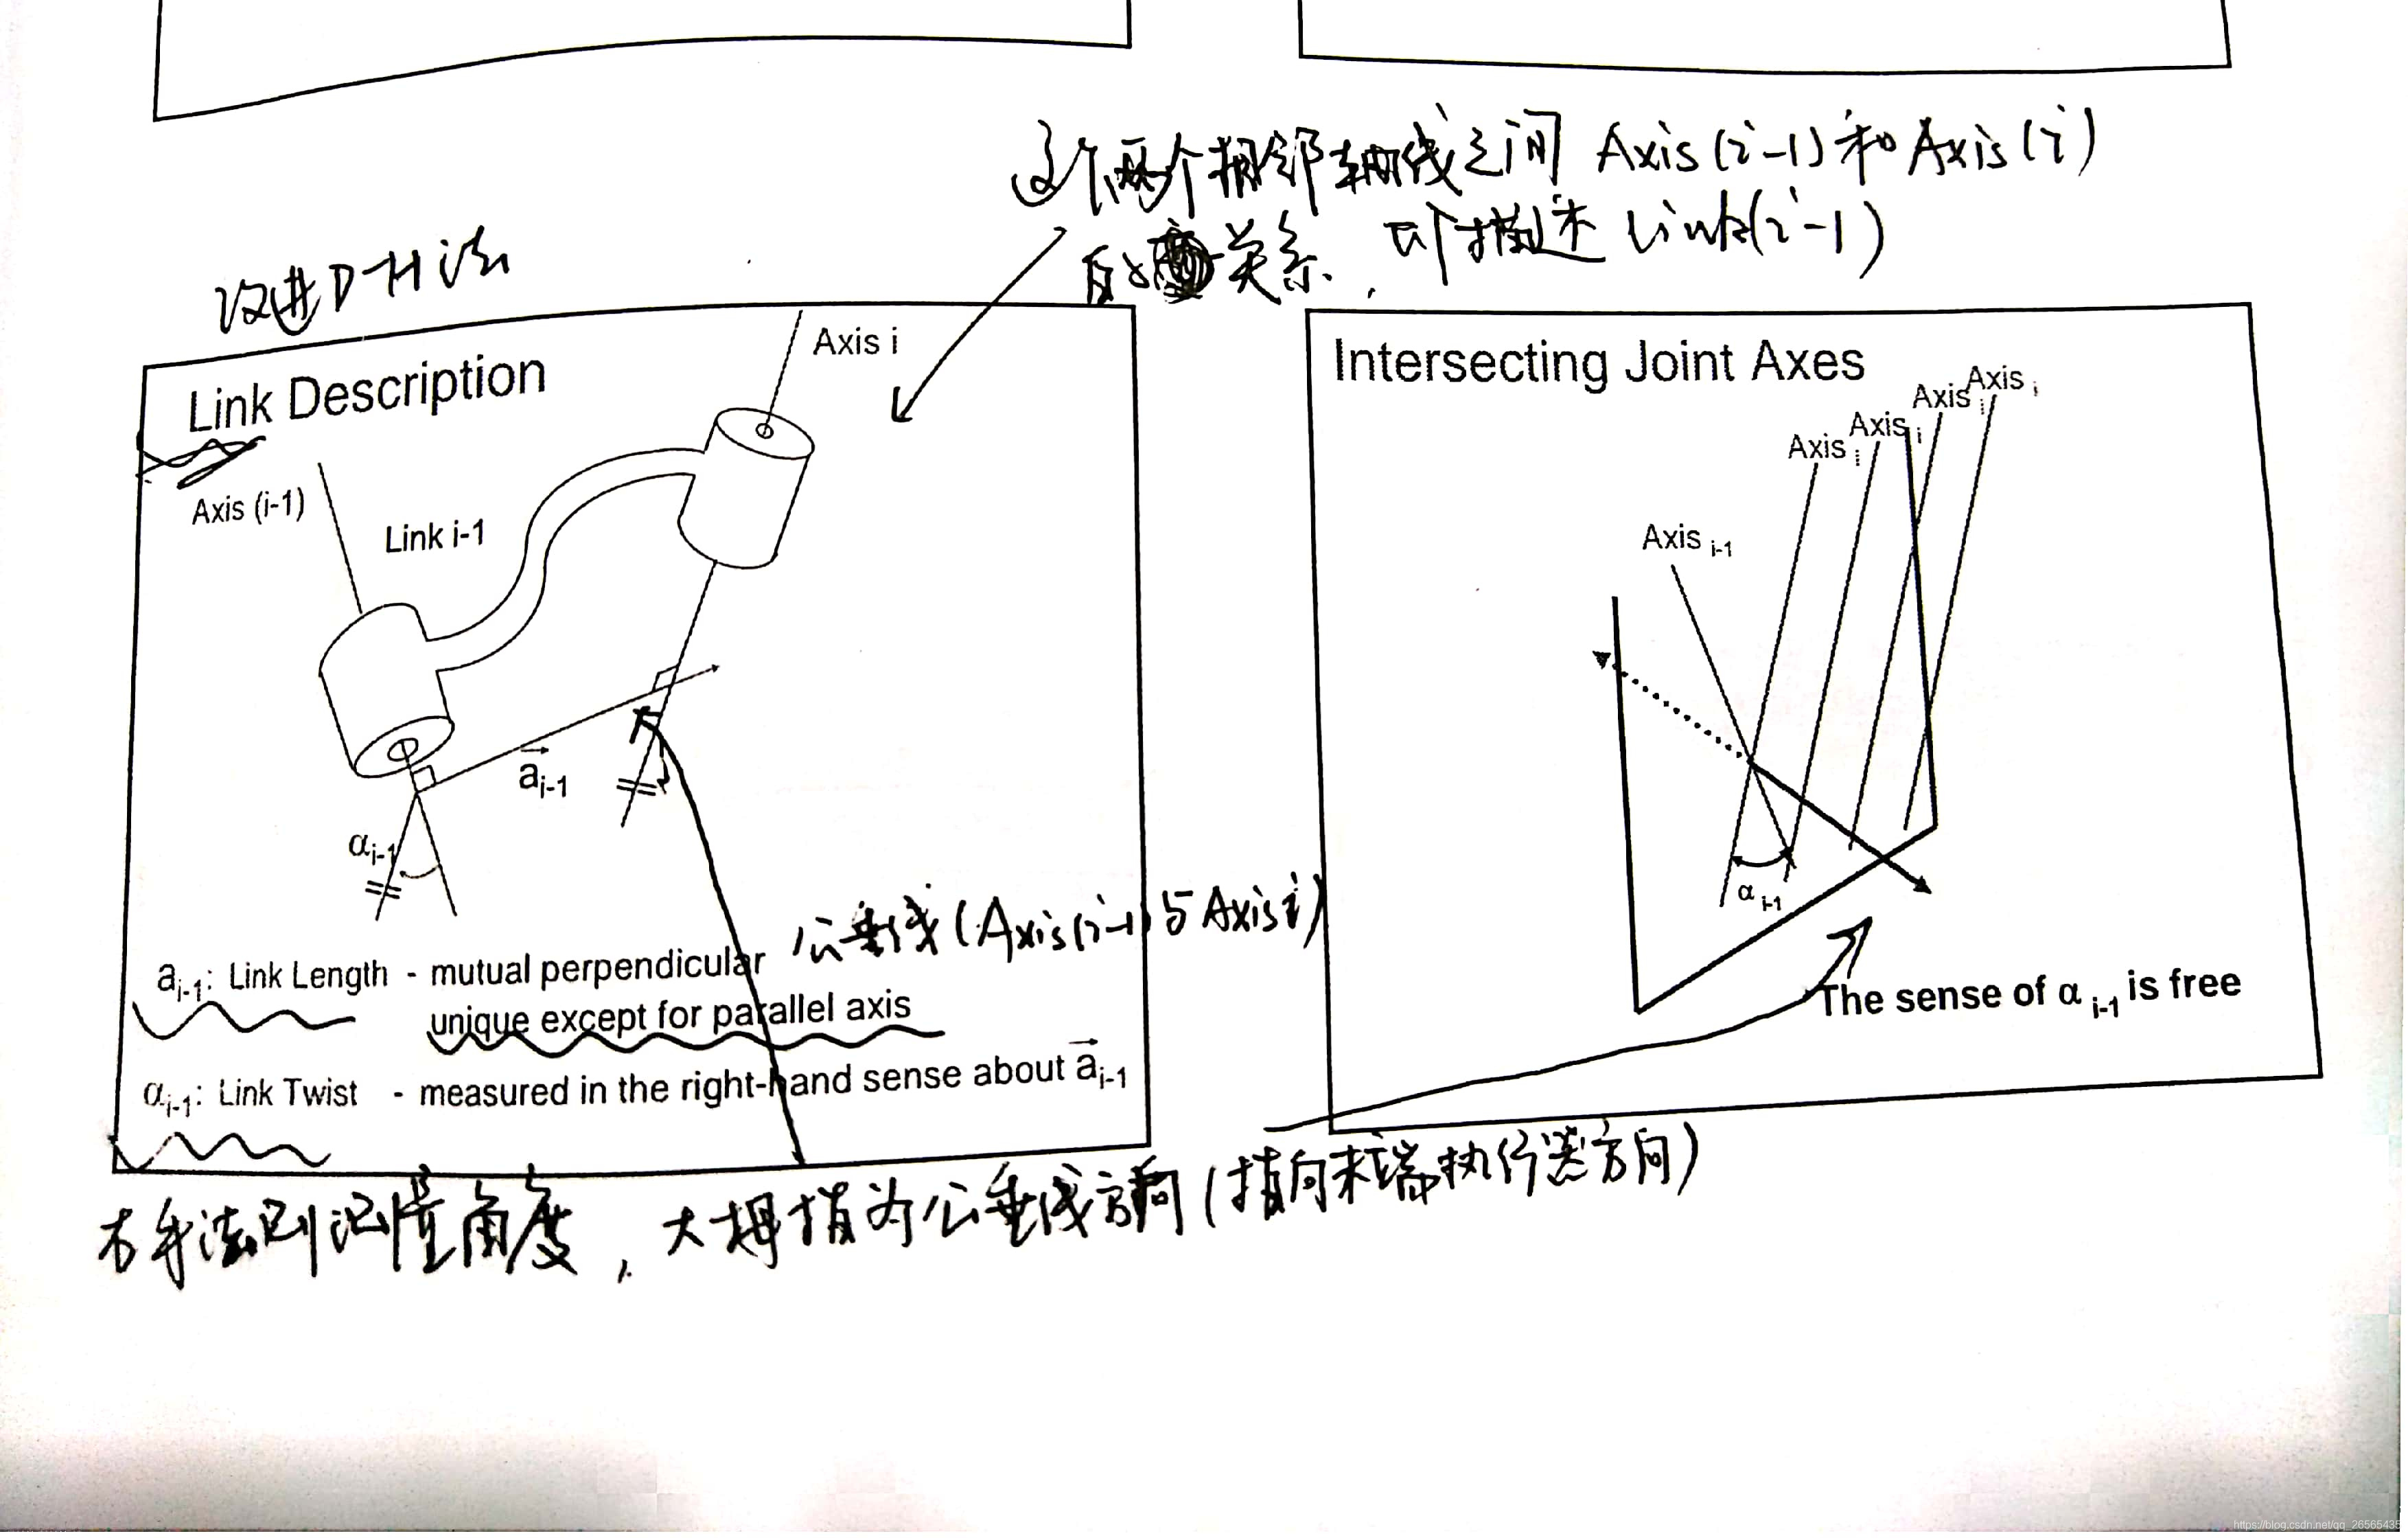 这个两个相邻轴线之间 Axis(i-1)和Axis(i)
的关系, 可描述 Link(i-1)
改进D-H法
Link Description
Axis i
Axis (i-1)
Link i-1
a i-1
α i-1
a i-1: Link Length - mutual perpendicular
unique except for parallel axis
公垂线(Axis(i-1)与Axis i)
α i-1: Link Twist - measured in the right-hand sense about a i-1
Intersecting Joint Axes
Axis i
Axis i
Axis i
Axis i
Axis i-1
α i-1
The sense of α i-1 is free
右手法则测量角度, 大拇指为公垂线方向(指向末端执行器方向)
https://blog.csdn.net/qq_26565435